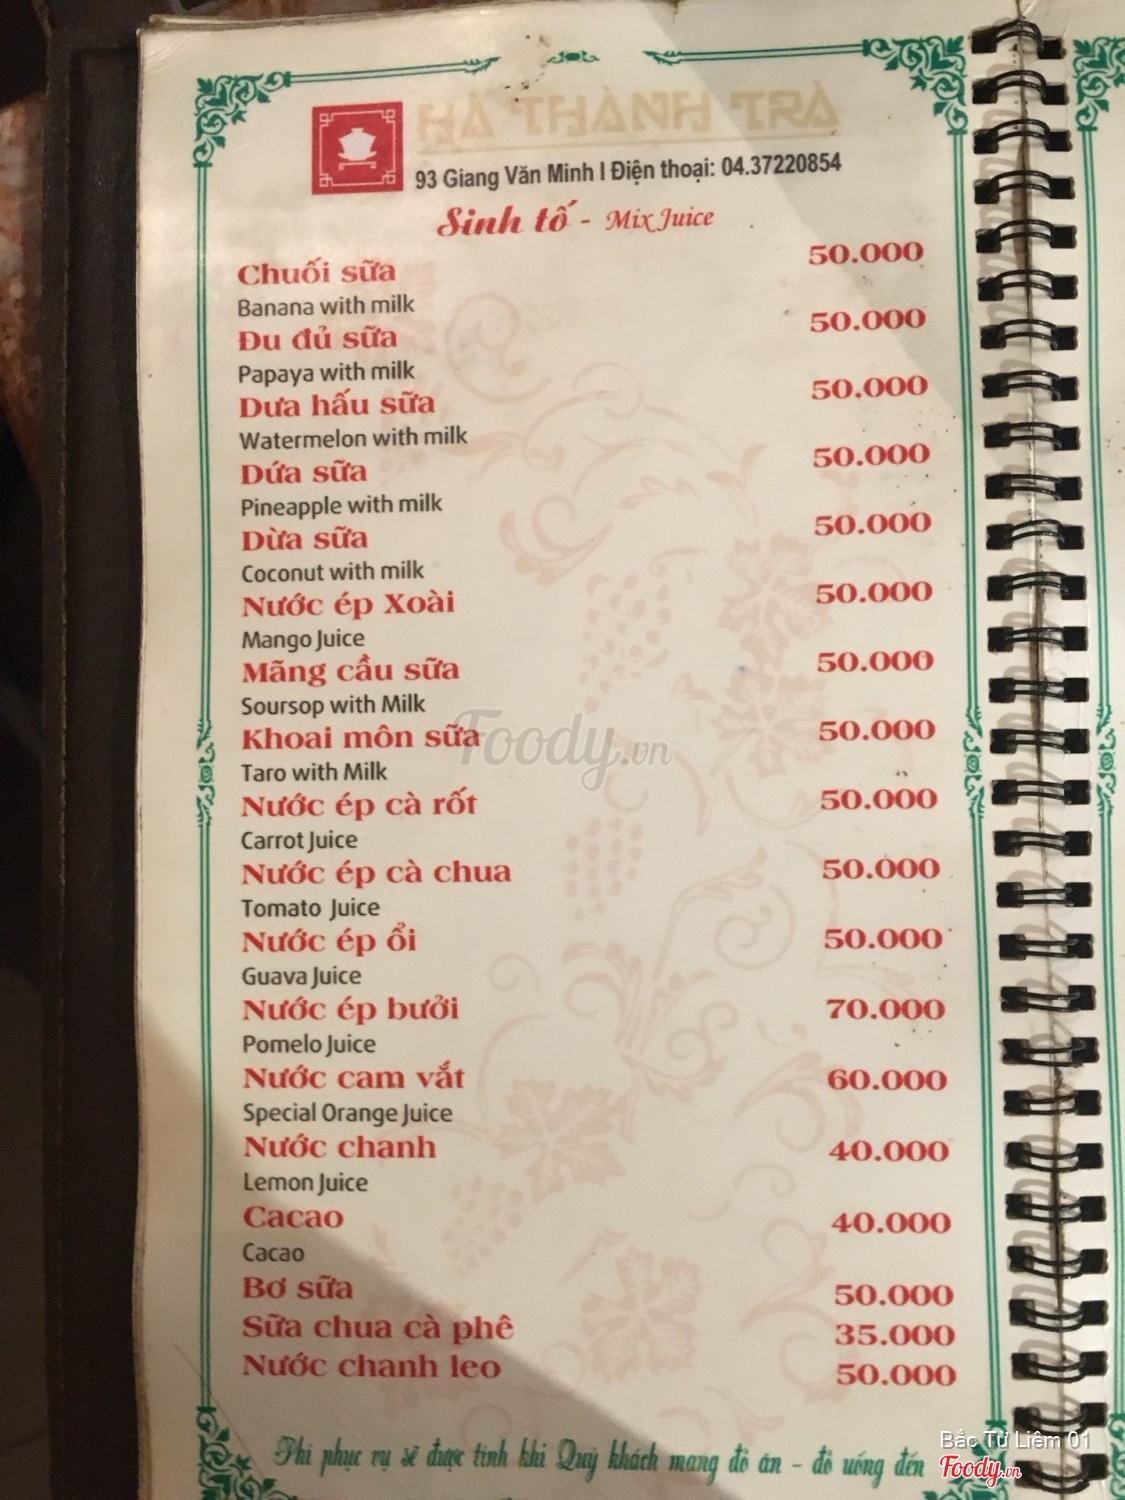 HÀ THÀNH TRÀ
93 Giang Văn Minh I Điện thoại: 04.37220854
Sinh tố - Mix Juice
Chuối sữa 50.000
Banana with milk
Đu đủ sữa 50.000
Papaya with milk
Dưa hấu sữa 50.000
Watermelon with milk
Dứa sữa 50.000
Pineapple with milk
Dừa sữa 50.000
Coconut with milk
Nước ép Xoài 50.000
Mango Juice
Mãng cầu sữa 50.000
Soursop with Milk
Khoai môn sữa 50.000
Taro with Milk
Nước ép cà rốt 50.000
Carrot Juice
Nước ép cà chua 50.000
Tomato Juice
Nước ép ổi 50.000
Guava Juice
Nước ép bưởi 70.000
Pomelo Juice
Nước cam vắt 60.000
Special Orange Juice
Nước chanh 40.000
Lemon Juice
Cacao 40.000
Cacao
Bơ sữa 50.000
Sữa chua cà phê 35.000
Nước chanh leo 50.000
Phí phục vụ sẽ được tính khi Quý khách mang đồ ăn - đồ uống đến
Foody.vn
Bắc Từ Liêm 01
Foody.vn